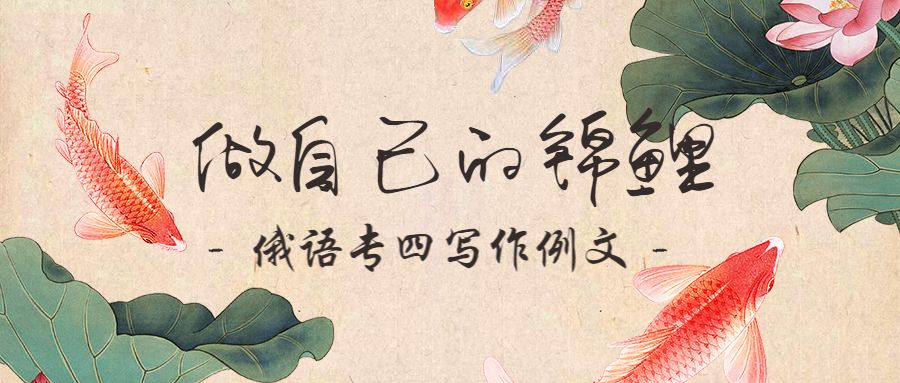 做自己的锦鲤
- 俄语专四写作例文 -